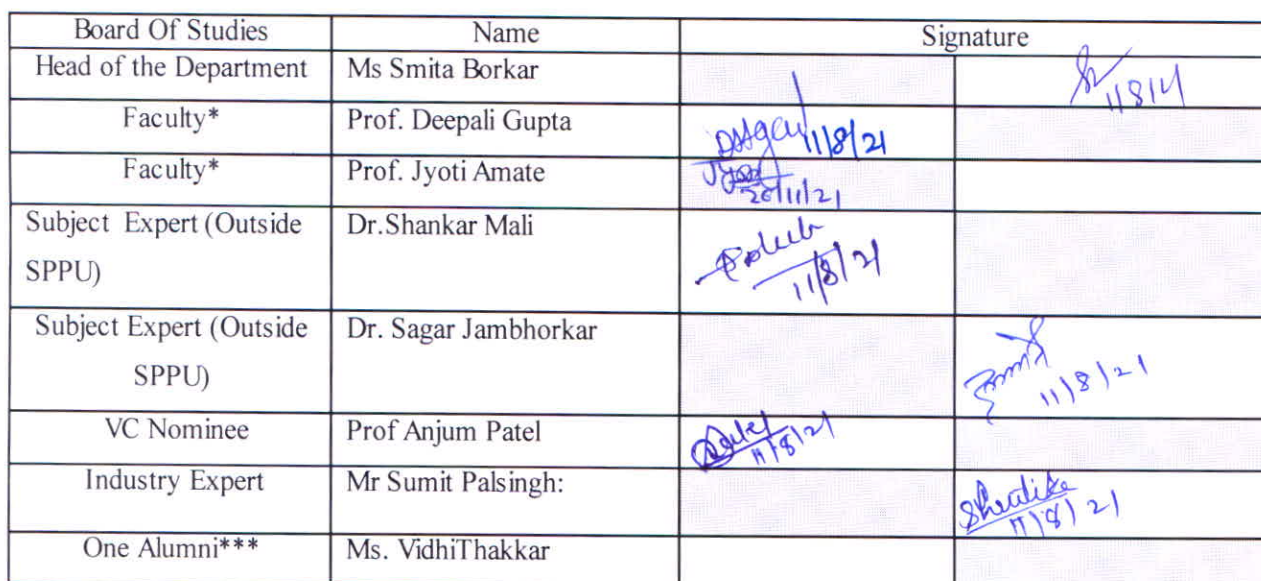 Board Of Studies Name Signature
Head of the Department Ms Smita Borkar 11/8/21
Faculty* Prof. Deepali Gupta 11/8/21
Faculty* Prof. Jyoti Amate
26/11/21
Subject Expert (Outside Dr.Shankar Mali
SPPU) 11/8/21
Subject Expert (Outside Dr. Sagar Jambhorkar
SPPU) 11/8/21
VC Nominee Prof Anjum Patel 11/8/21
Industry Expert Mr Sumit Palsingh:
11/8/21
One Alumni*** Ms. VidhiThakkar